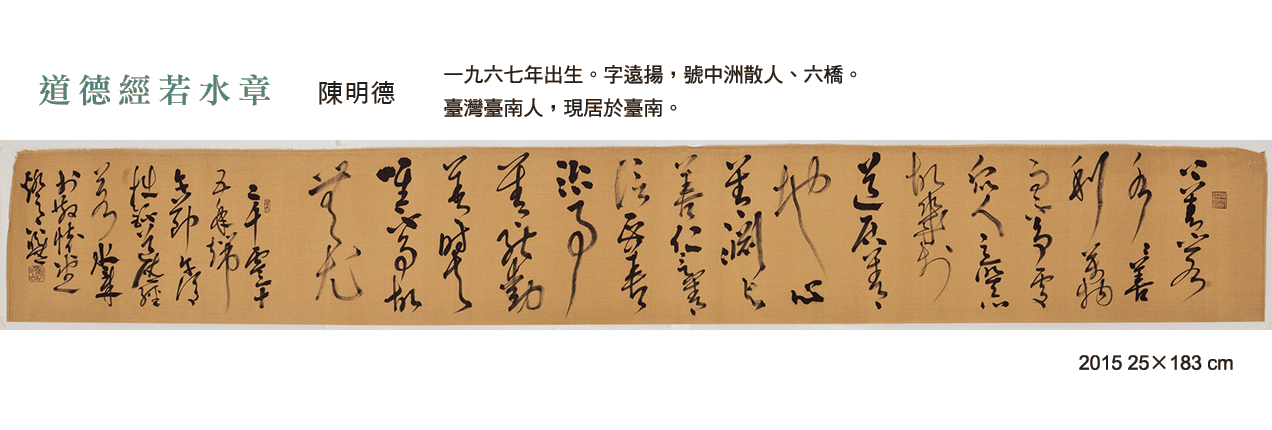 道德經若水章
陳明德
一九六七年出生。字遠揚，號中洲散人、六橋。
臺灣臺南人，現居於臺南。
上善若
水善
利萬物
而不爭處
眾人之所惡
故幾於
道居善
地心
善淵與
善仁言善
信正善
治事
善能動
善時夫
唯不爭故
無尤
二千零十
五年端
道德經
若水章
2015 25×183 cm